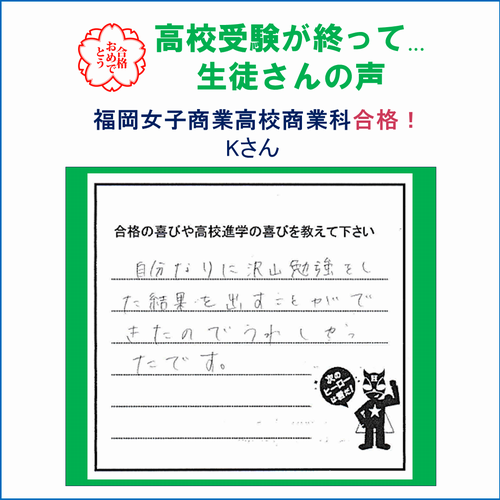 合格
おめで
とう
高校受験が終って...
生徒さんの声
福岡女子商業高校商業科合格！
Kさん
合格の喜びや高校進学の喜びを教えて下さい
自分なりに沢山勉強をし
た結果を出すことがで
きたのでうれしかっ
たです。
次の
ヒーロー
は君だ!
H